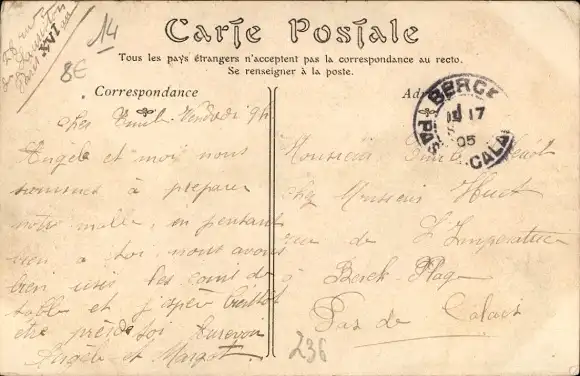 Carte Postale
Tous les pays étrangers n'acceptent pas la correspondance au recto.
Se renseigner à la poste.
14
8E
28 rue
Paris XVI
Correspondance
Vendredi 9h
Angèle et moi nous
sommes à préparer
notre malle, en pensant
bien à toi, nous avons
bien
table et j'espère bientôt
être près de toi Aurevoir
Angèle et Margot
BERCK
17
05
PAS CALAIS
Monsieur
chez Monsieur Huet
rue de L'Impératrice
à Berck-Plage
Pas de Calais
236